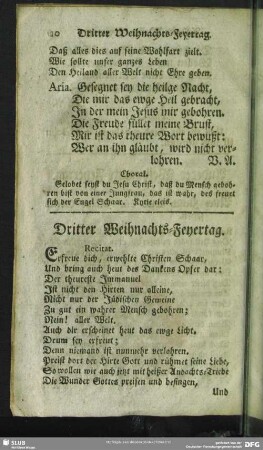 20 Dritter Weihnachts-Feyertag.
Daß alles dies auf seine Wohlfart zielt.
Wie sollte unser ganzes Leben
Den Heiland aller Welt nicht Ehre geben.
Aria. Gesegnet sey die heilge Nacht,
Die mir das ewge Heil gebracht,
In der mein Jesus mir gebohren.
Die Freude füllet meine Brust,
Mir ist das theure Wort bewußt:
Wer an ihn gläubt, wird nicht ver-
lohren. V. A.
Choral.
Gelobet seyst du Jesu Christ, daß du Mensch geboh-
ren bist von einer Jungfrau, das ist wahr, des freuet
sich der Engel Schaar. Kyrie eleis.
Dritter Weihnachts-Feyertag.
Recitat.
Erfreue dich, erwehlte Christen Schaar,
Und bring auch heut des Dankens Opfer dar;
Der theureste Immanuel
Ist nicht den Hirten nur alleine,
Nicht nur der Jüdischen Gemeine
Zu gut ein wahrer Mensch gebohren;
Nein! aller Welt.
Auch dir erscheinet heut das ewge Licht.
Drum sey erfreut;
Denn niemand ist nunmehr verlohren.
Preist dort der Hirte Gott und rühmet seine Liebe,
So wollen wie auch jetzt mit heißer Andachts-Triebe
Die Wunder Gottes preisen und besingen,
Und
SLUB